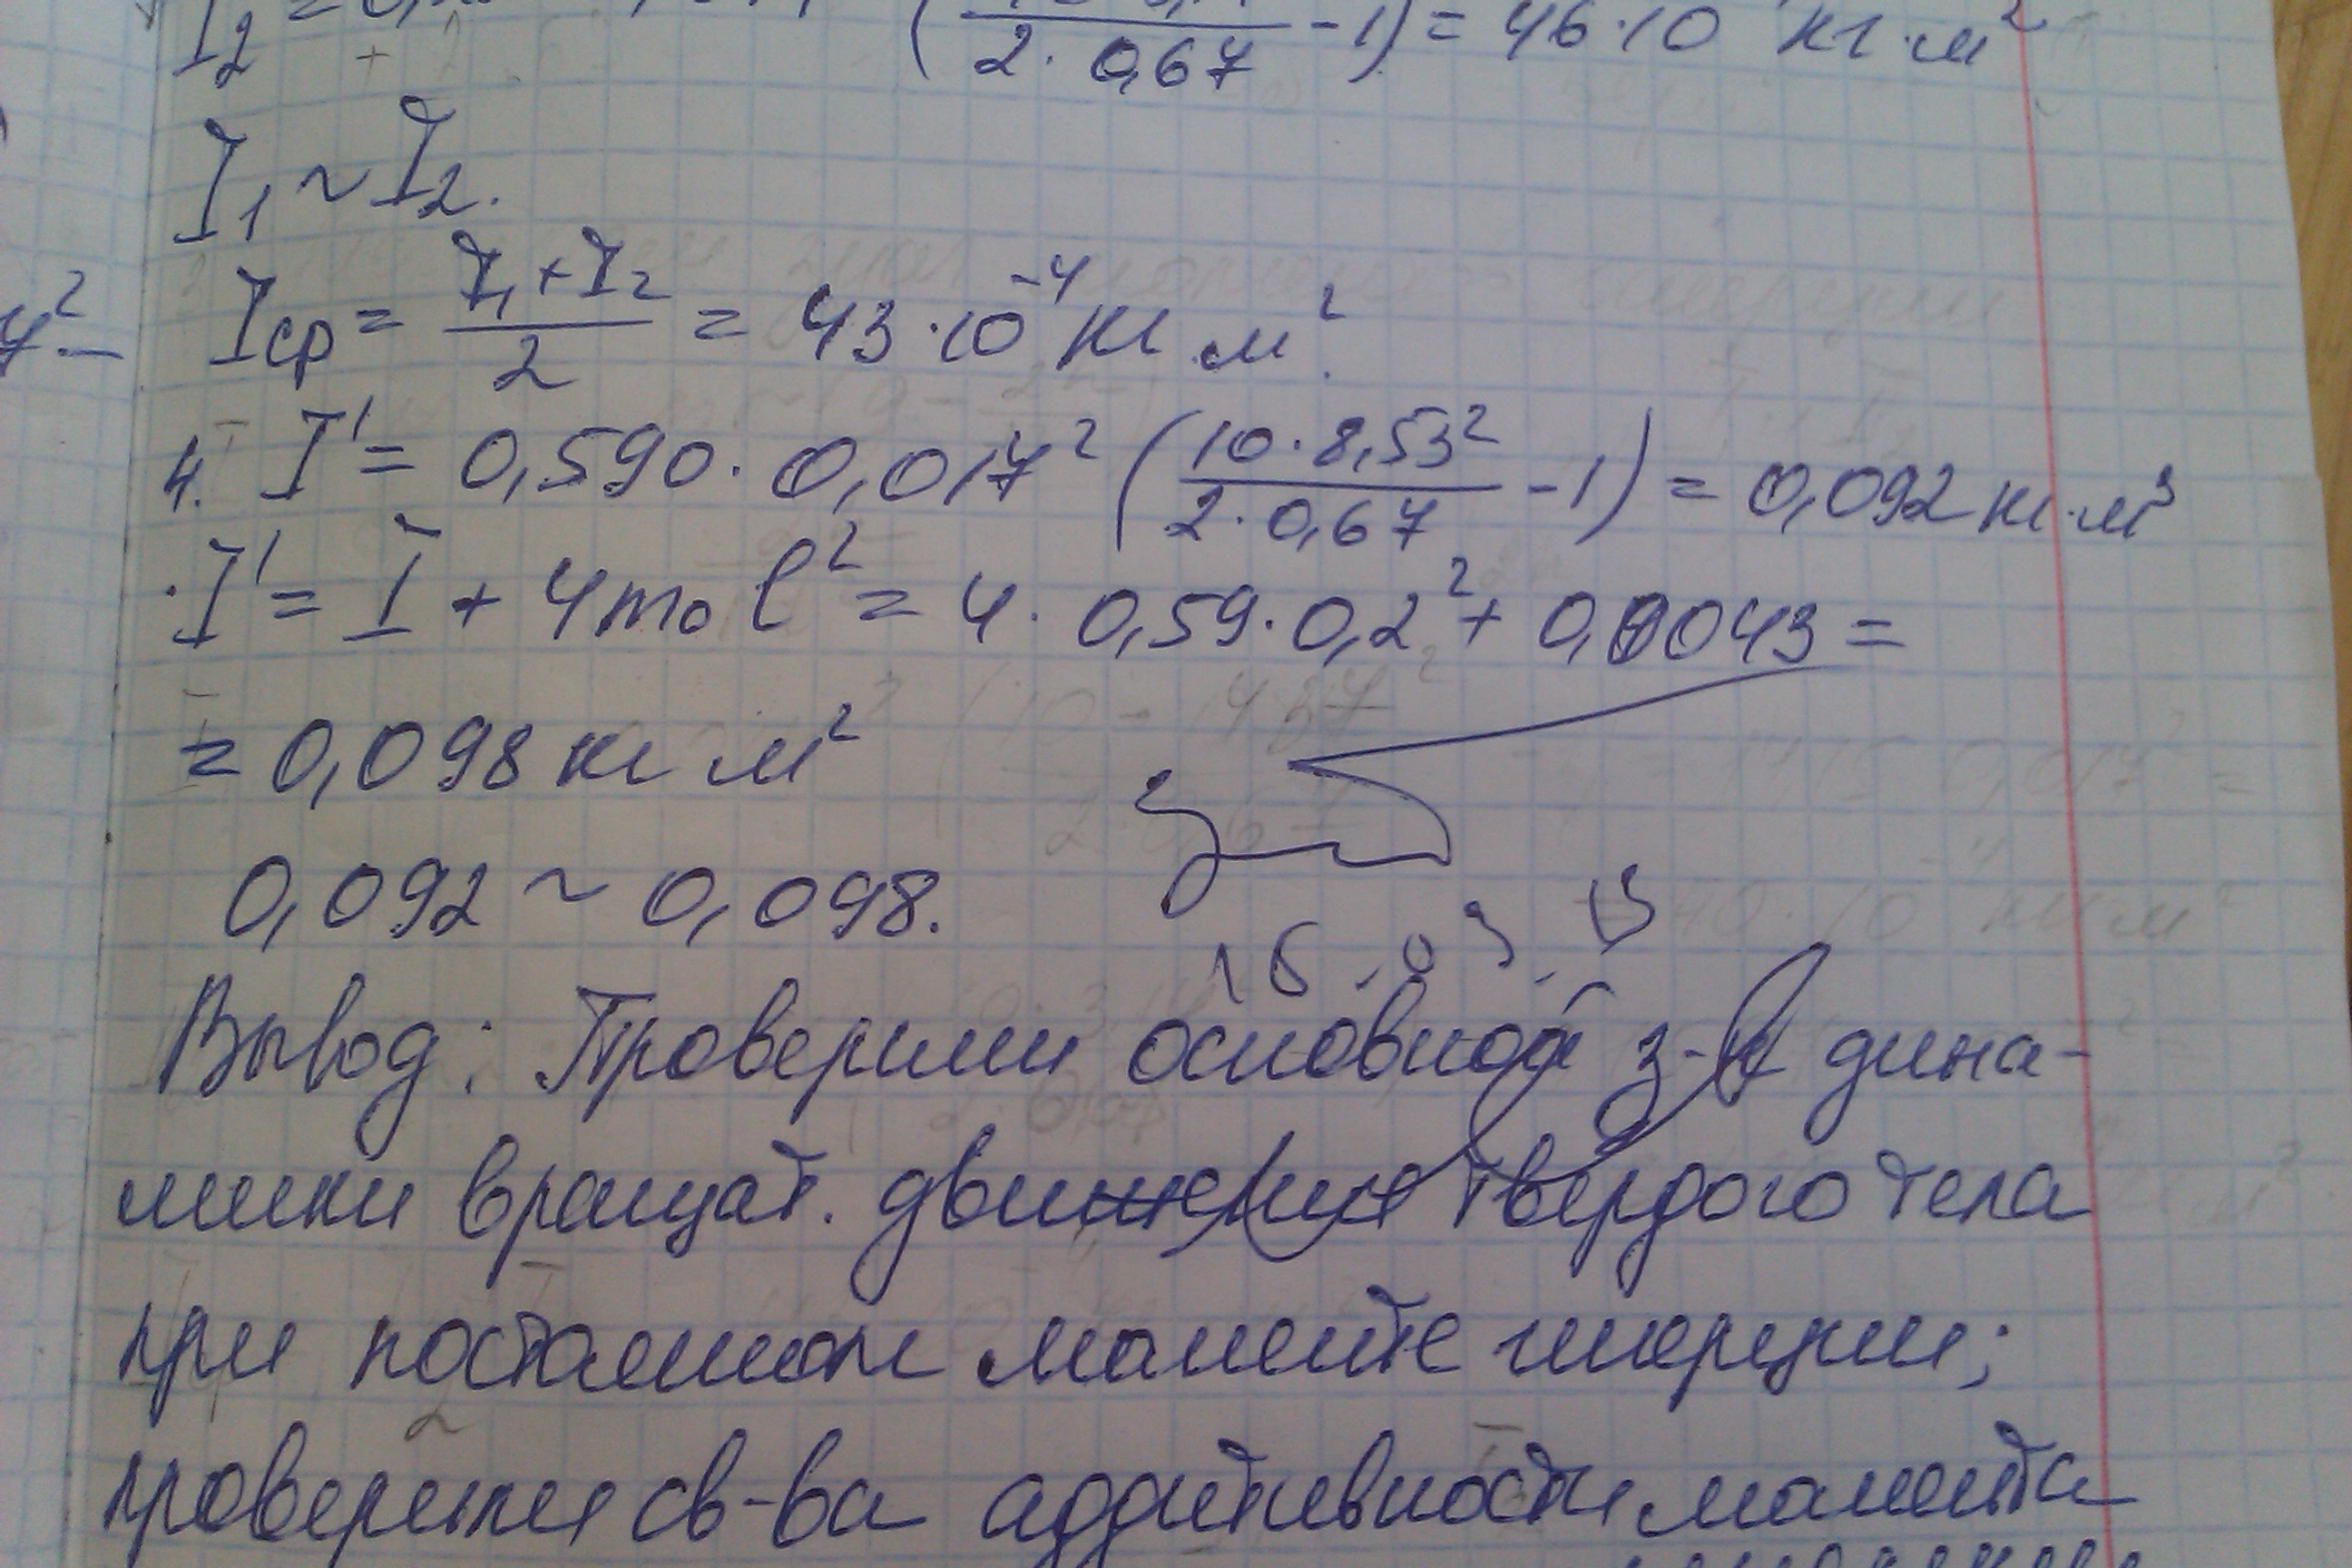 I₂ = (—/2·0,67 - 1) = 46·10 кг·м²
I₁ ~ I₂.
Iср = (I₁+I₂)/2 = 43·10⁻⁴ кг м².
4. I' = 0,590·0,017² (10·8,53²/2·0,67 - 1) = 0,092 кг·м³
I' = I + 4m₀l² = 4·0,59·0,2² + 0,0043 =
= 0,098 кг м²
0,092 ~ 0,098.
Вывод: Проверили основной з-н дина-
мики вращат. движение твердого тела
при постоянном моменте инерции;
проверили св-ва аддитивности момента